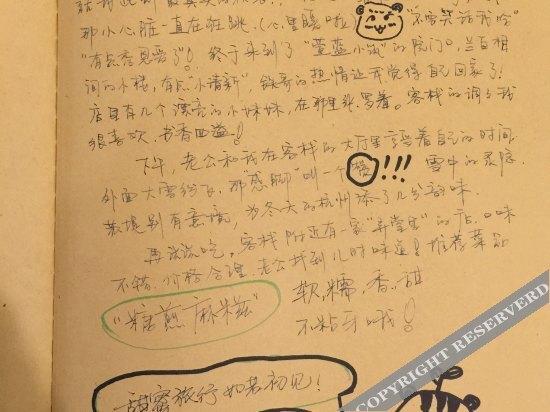 那小心脏一直在狂跳.(心里暖啦 "不要笑话我哈"
"有点舍见爱了"! 终于来到了"莹蓝小筑"的院门。兰白相
间的小楼,有点"小清新" 铁哥的热情让我觉得自己回家了!
店里有几个漂亮的小妹妹,在那里张罗着。客栈的调调我
很喜欢,书香四溢!
下午,老公和我在客栈的大厅里享受着自己的时间,
外面大雪纷飞,那"感脚"叫一个 !!! 雪中的灵隐
别有意境,为冬天的杭州添了几分韵味
再说说吃。客栈附近有一家"弄堂里"的店,口味
不错,价格合理,老公找到儿时味道!推荐菜品
"糖煎麻糍"
软,糯,香,甜
不粘牙哦!
甜蜜旅行如若初见!
COPYRIGHT RESERVED